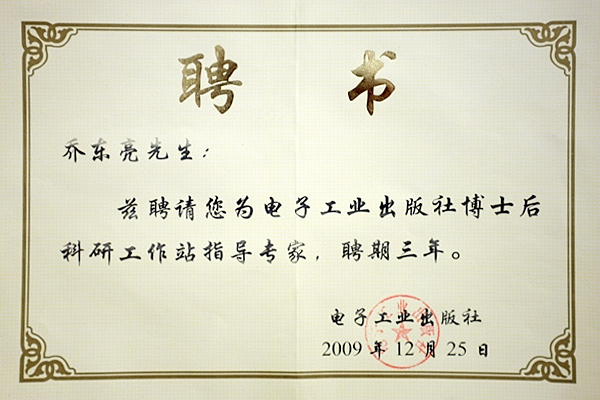 聘书
乔东亮先生：
兹聘请您为电子工业出版社博士后
科研工作站指导专家，聘期三年。
电子工业出版社
2009 年 12 月 25 日